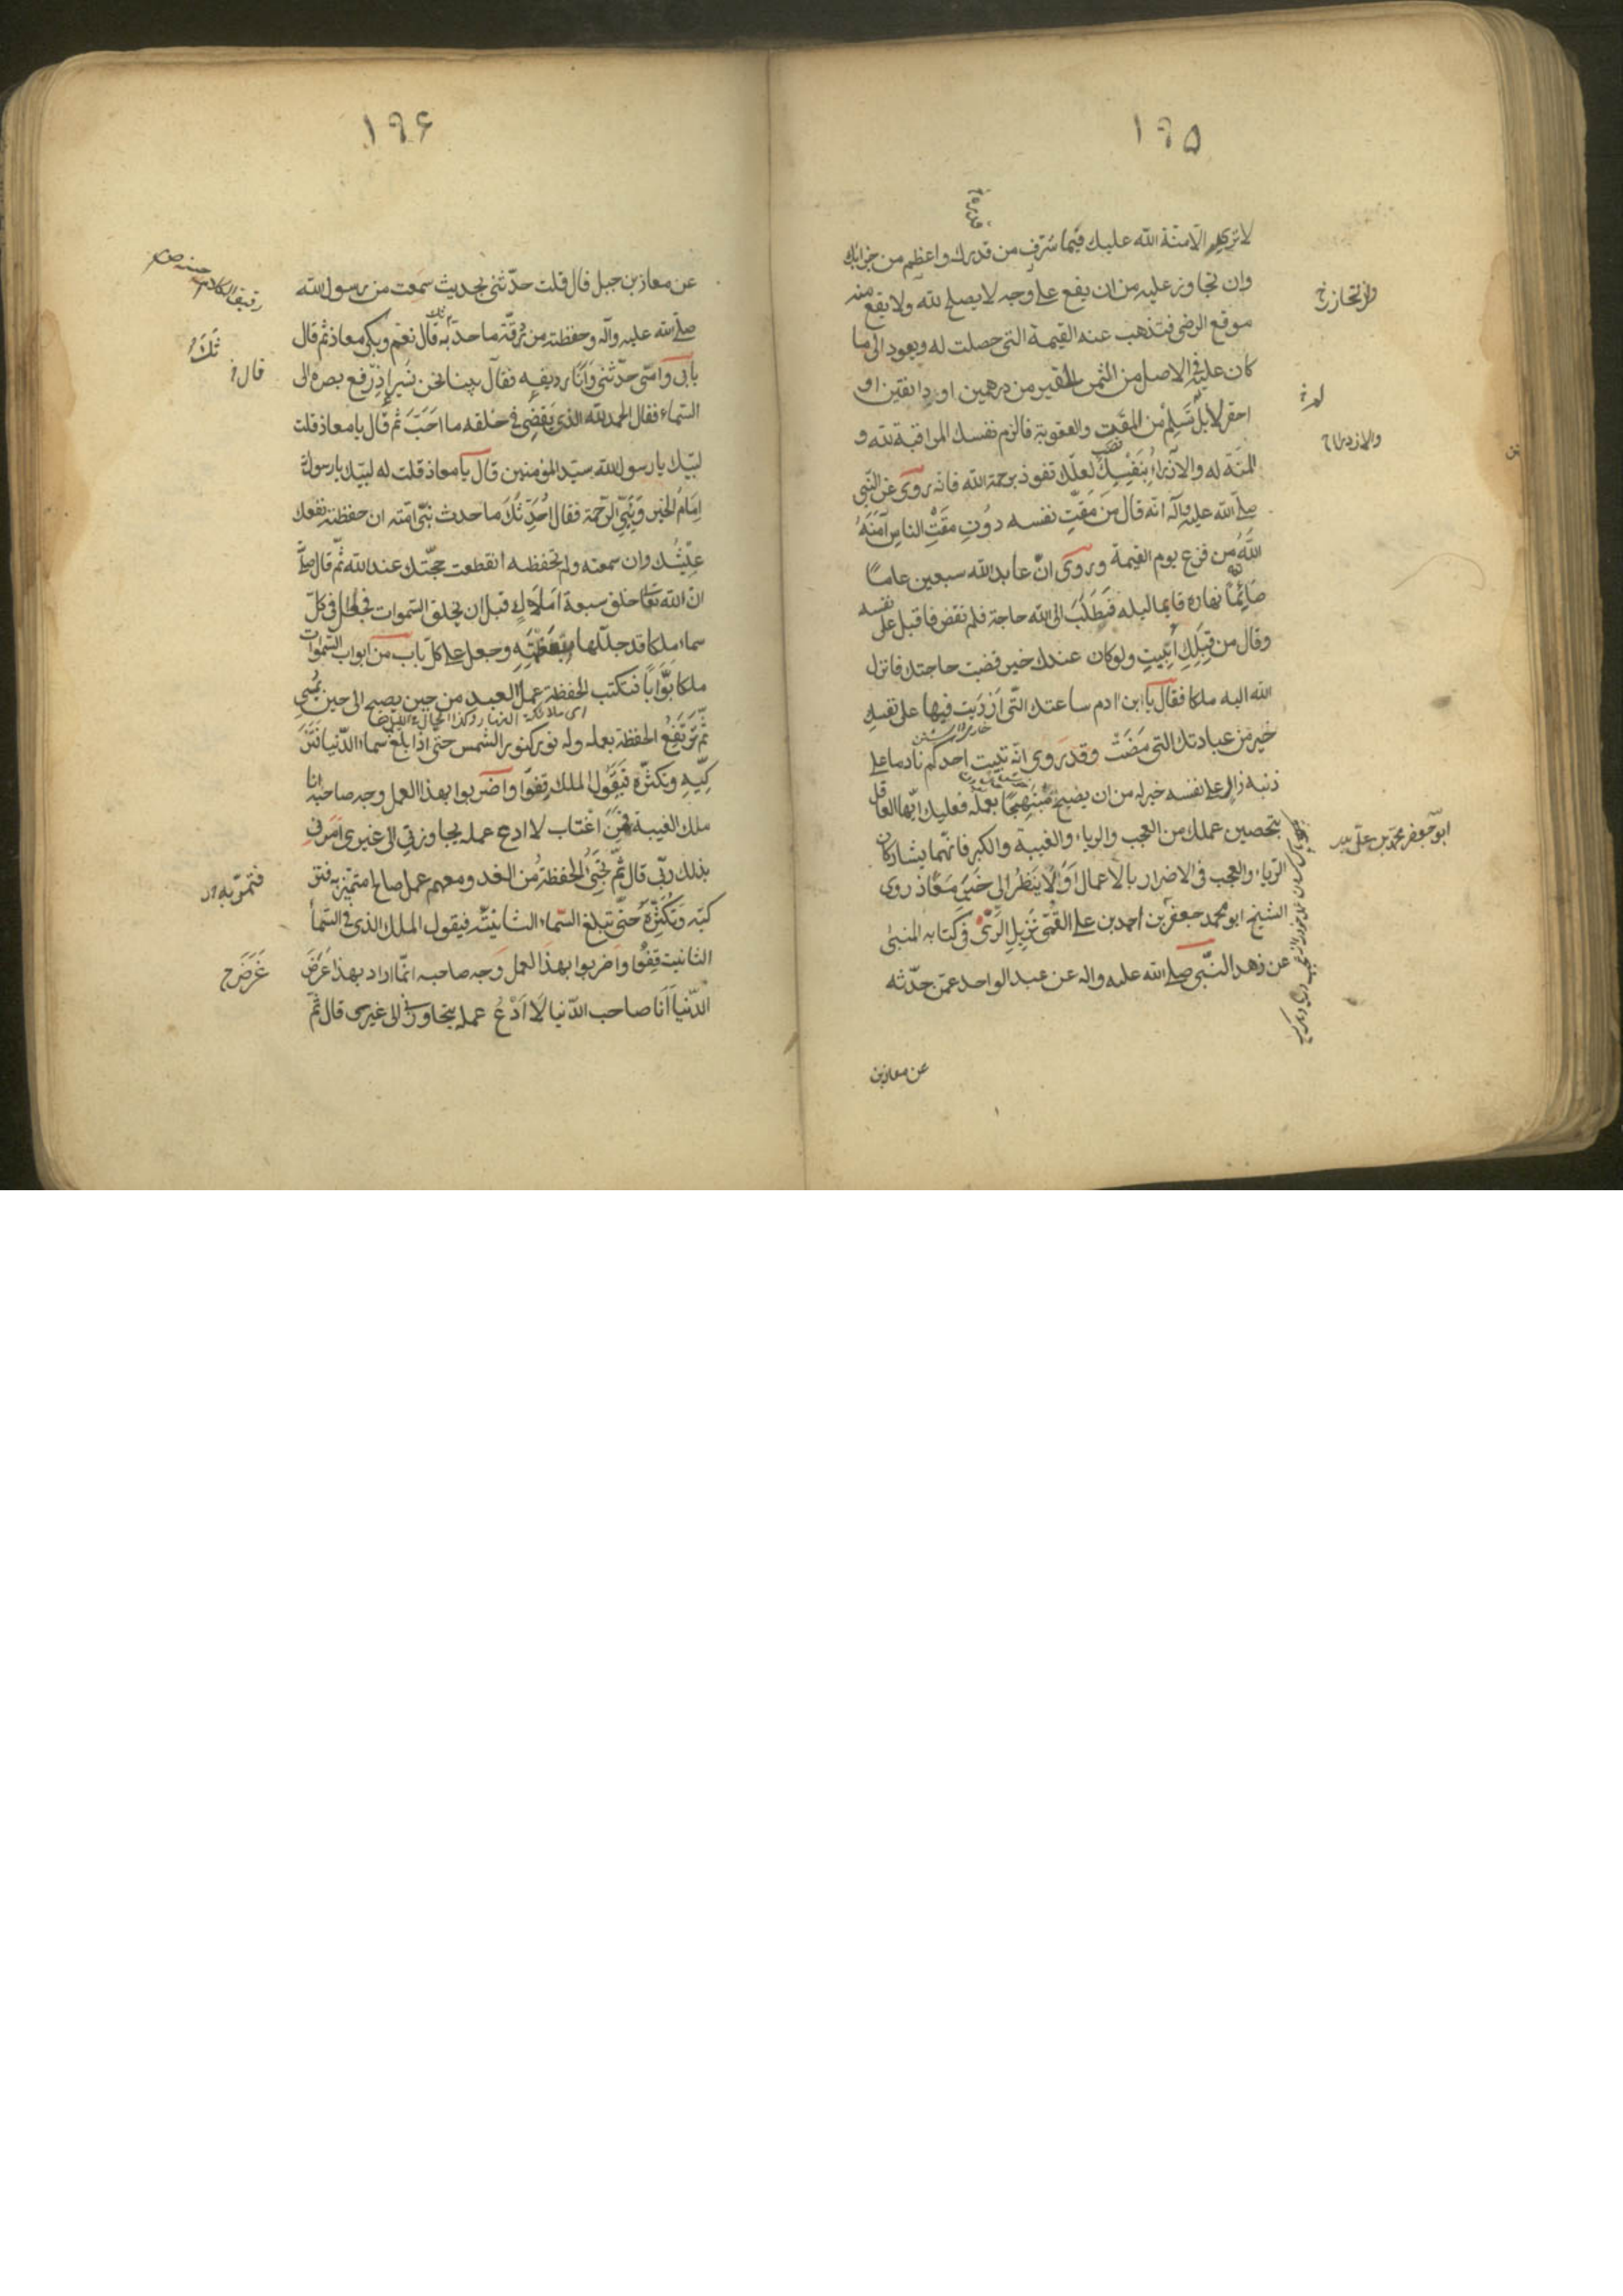 ١٩٥
لا ترى الا منة الله عليك فيما شرف من قدرك واعظم من جزائك
وان تجاوز عليه من ان يقع على وجه لا يصلح لله ولا يقع منه
موقع الرضى فتذهب عنه القيمة التى حصلت له ويعود الى ما
كان عليه فى الاصل من الثمن الحقير من درهمين او دانقين او
احقر لا بل تسلم من المقت والعقوبة فالزم نفسك المراقبة لله و
المنة له والازراء بنفسك لعلك تفوز برحمة الله فانه روى عن النبى
صلى الله عليه وآله انه قال من مقت نفسه دون مقت الناس آمنه
الله من فزع يوم القيمة وروى ان عابد الله سبعين عاما
صائما نهاره قايما ليله فطلب الى الله حاجة فلم تقض فاقبل على نفسه
وقال من قبلك اتيت ولو كان عندك خير قضيت حاجتك فانزل
الله اليه ملكا فقال يا ابن ادم ساعتك التى ازريت فيها على نفسك
خير من عبادتك التى مضت وقد روى انه تبيت احدكم نادما على
ذنبه زار على نفسه خير له من ان يصبح مبتهجا بعمله فعليك ايها العاقل
بتحصين عملك من العجب والرياء والغيبة والكبر فانهما يشاركان
الرياء والعجب فى الاضرار بالاعمال اولا ينظر الى خبر معاذ روى
الشيخ ابو محمد جعفر بن احمد بن على القمى نزيل الرى فى كتابه المنبئ
عن زهد النبى صلى الله عليه واله عن عبد الواحد عمن حدثه
عن معاذ بن
ابو جعفر محمد بن على
١٩٦
عن معاذ بن جبل قال قلت حدثنى بحديث سمعت من رسول الله
صلى الله عليه وآله وحفظته من رقة ما حدثك به قال نعم وبكى معاذ ثم قال
بابى وامى حدثنى وانا رديفه فقال بينا نحن نسير اذ رفع بصره الى
السماء فقال الحمد لله الذى يقضى فى خلقه ما احب ثم قال يا معاذ قلت
لبيك يا رسول الله سيد المؤمنين قال يا معاذ قلت له لبيك يا رسول الله
امام الخير ونبى الرحمة فقال احدثك ما حدث نبى امته ان حفظته نفعك
عيشك وان سمعته ولم تحفظه انقطعت حجتك عند الله ثم قال
ان الله تعالى خلق سبعة املاك قبل ان يخلق السموات فجعل فى كل
سماء ملكا قد جللها بعظمته وجعل على كل باب من ابواب السموات
ملكا بوابا فتكتب الحفظة عمل العبد من حين يصبح الى حين يمسى
ثم ترتفع الحفظة بعمله وله نور كنور الشمس حتى اذا بلغ سماء الدنيا فتز
كيه وتكثره فيقول الملك قفوا واضربوا بهذا العمل وجه صاحبه انا
ملك الغيبة فمن اغتاب لا ادع عمله يجاوزنى الى غيرى امرنى
بذلك ربى قال ثم تجىء الحفظة من الغد ومعهم عمل صالح متميز به فتز
كيه وتكثره حتى تبلغ السماء الثانية فيقول الملك الذى فى السماء
الثانية قفوا واضربوا بهذا العمل وجه صاحبه انما اراد بهذا عرض
الدنيا انا صاحب الدنيا لا ادع عمله يتجاوزنى الى غيرى قال ثم
قال
فتمر به
غرض